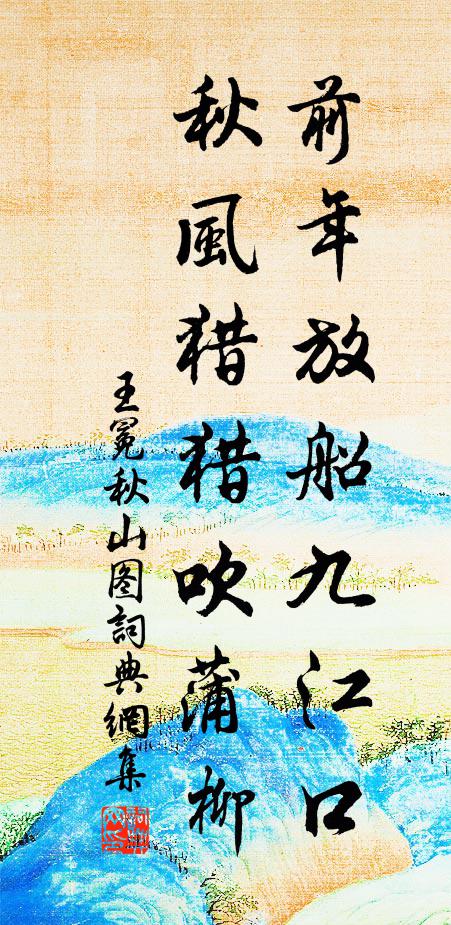 前年放船九江口
秋風猎猎吹蒲柳
王冕秋山图詞典網集